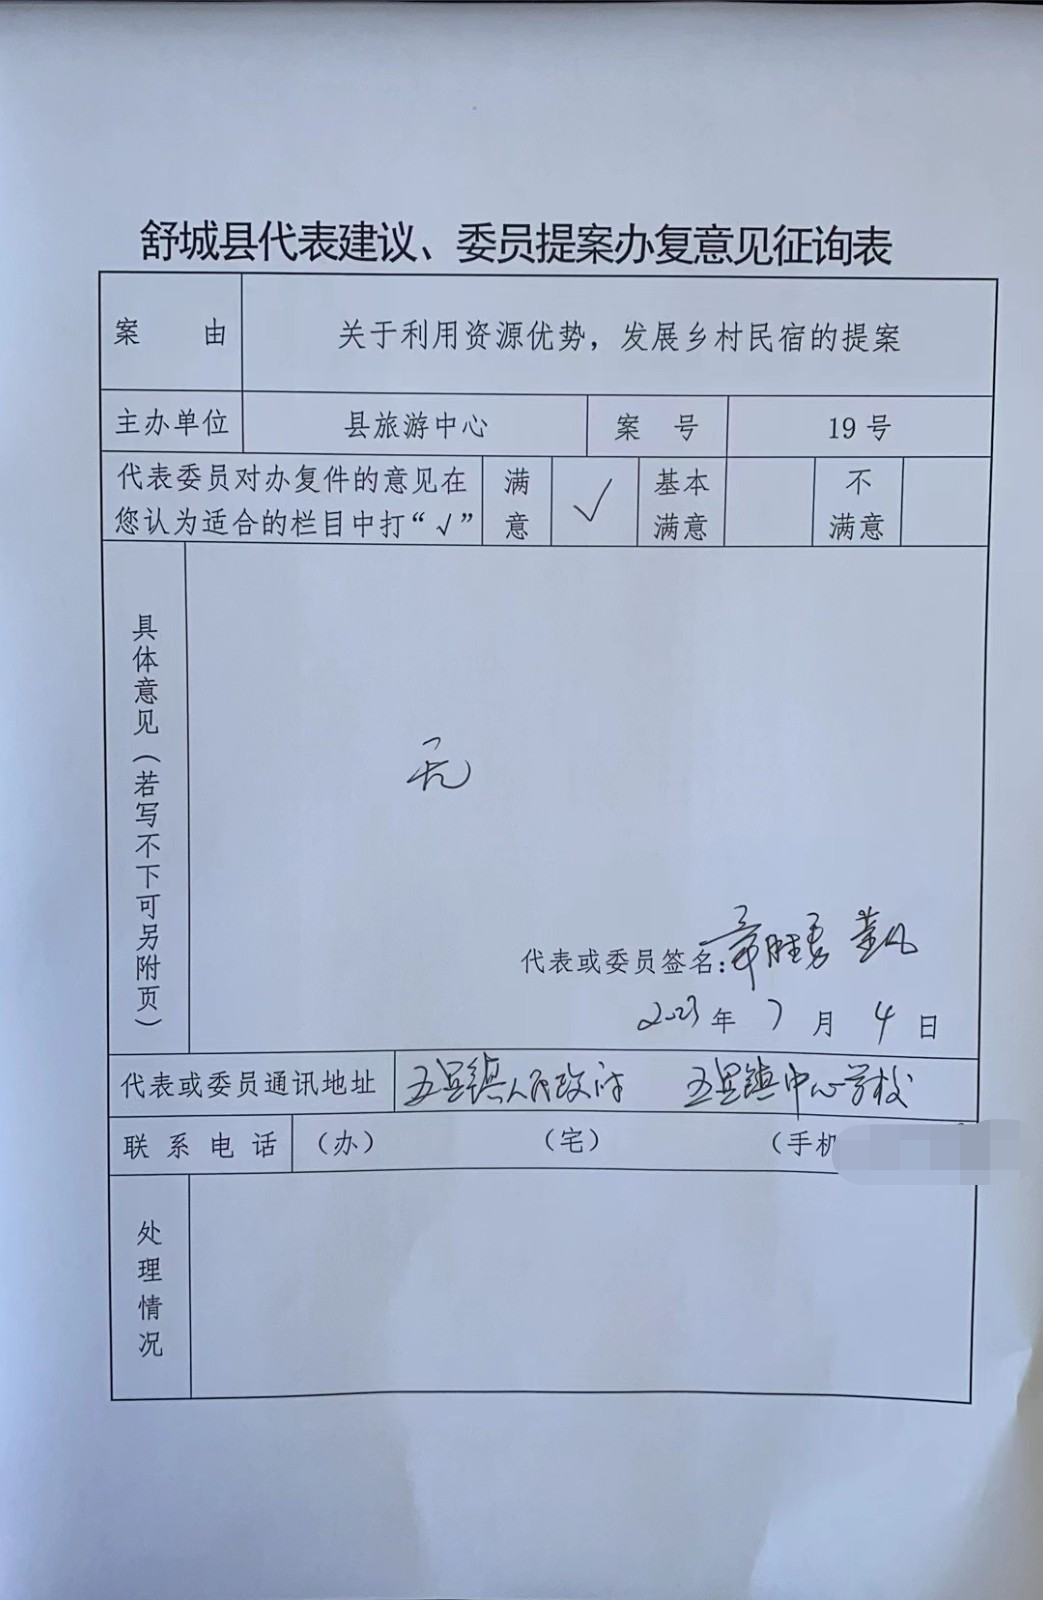 舒城县代表建议、委员提案办复意见征询表
案由 关于利用资源优势，发展乡村民宿的提案
主办单位 县旅游中心 案号 19号
代表委员对办复件的意见在您认为适合的栏目中打“√” 满意 √ 基本满意 不满意
具体意见（若写不下可另附页）
无
代表或委员签名：章胜勇
2023年7月4日
代表或委员通讯地址 五显镇人民政府 五显镇中心学校
联系电话 （办） （宅） （手机
处理情况